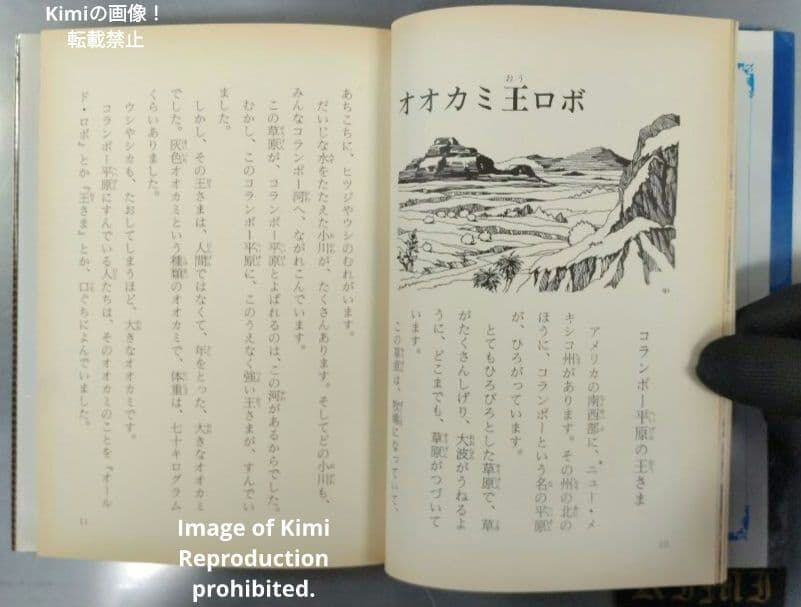 Kimiの画像！
転載禁止
オオカミ王ロボ
コランポー平原の王さま
アメリカの南西部に、ニュー・メ
キシコ州があります。その州の北の
ほうに、コランポーという名の平原
が、ひろがっています。
とてもひろびろとした草原で、草
がたくさんしげり、大波がうねるよ
うに、どこまでも、草原がつづいて
います。
この草原は、牧場になっていて、
10
あちこちに、ヒツジやウシのむれがいます。
だいじな水をたたえた小川が、たくさんあります。そしてどの小川も、
みんなコランポー河へ、ながれこんでいます。
この草原が、コランポー平原とよばれるのは、この河があるからでした。
むかし、このコランポー平原に、このうえなく強い王さまが、すんでい
ました。
しかし、その王さまは、人間ではなくて、年をとった、大きなオオカミ
でした。灰色オオカミという種類のオオカミで、体重は、七十キログラム
くらいありました。
ウシやシカも、たおしてしまうほど、大きなオオカミです。
コランポー平原にすんでいる人たちは、そのオオカミのことを『オール
ド・ロボ』とか『王さま』とか、口ぐちによんでいました。
11
Image of Kimi
Reproduction
prohibited.
KIMI